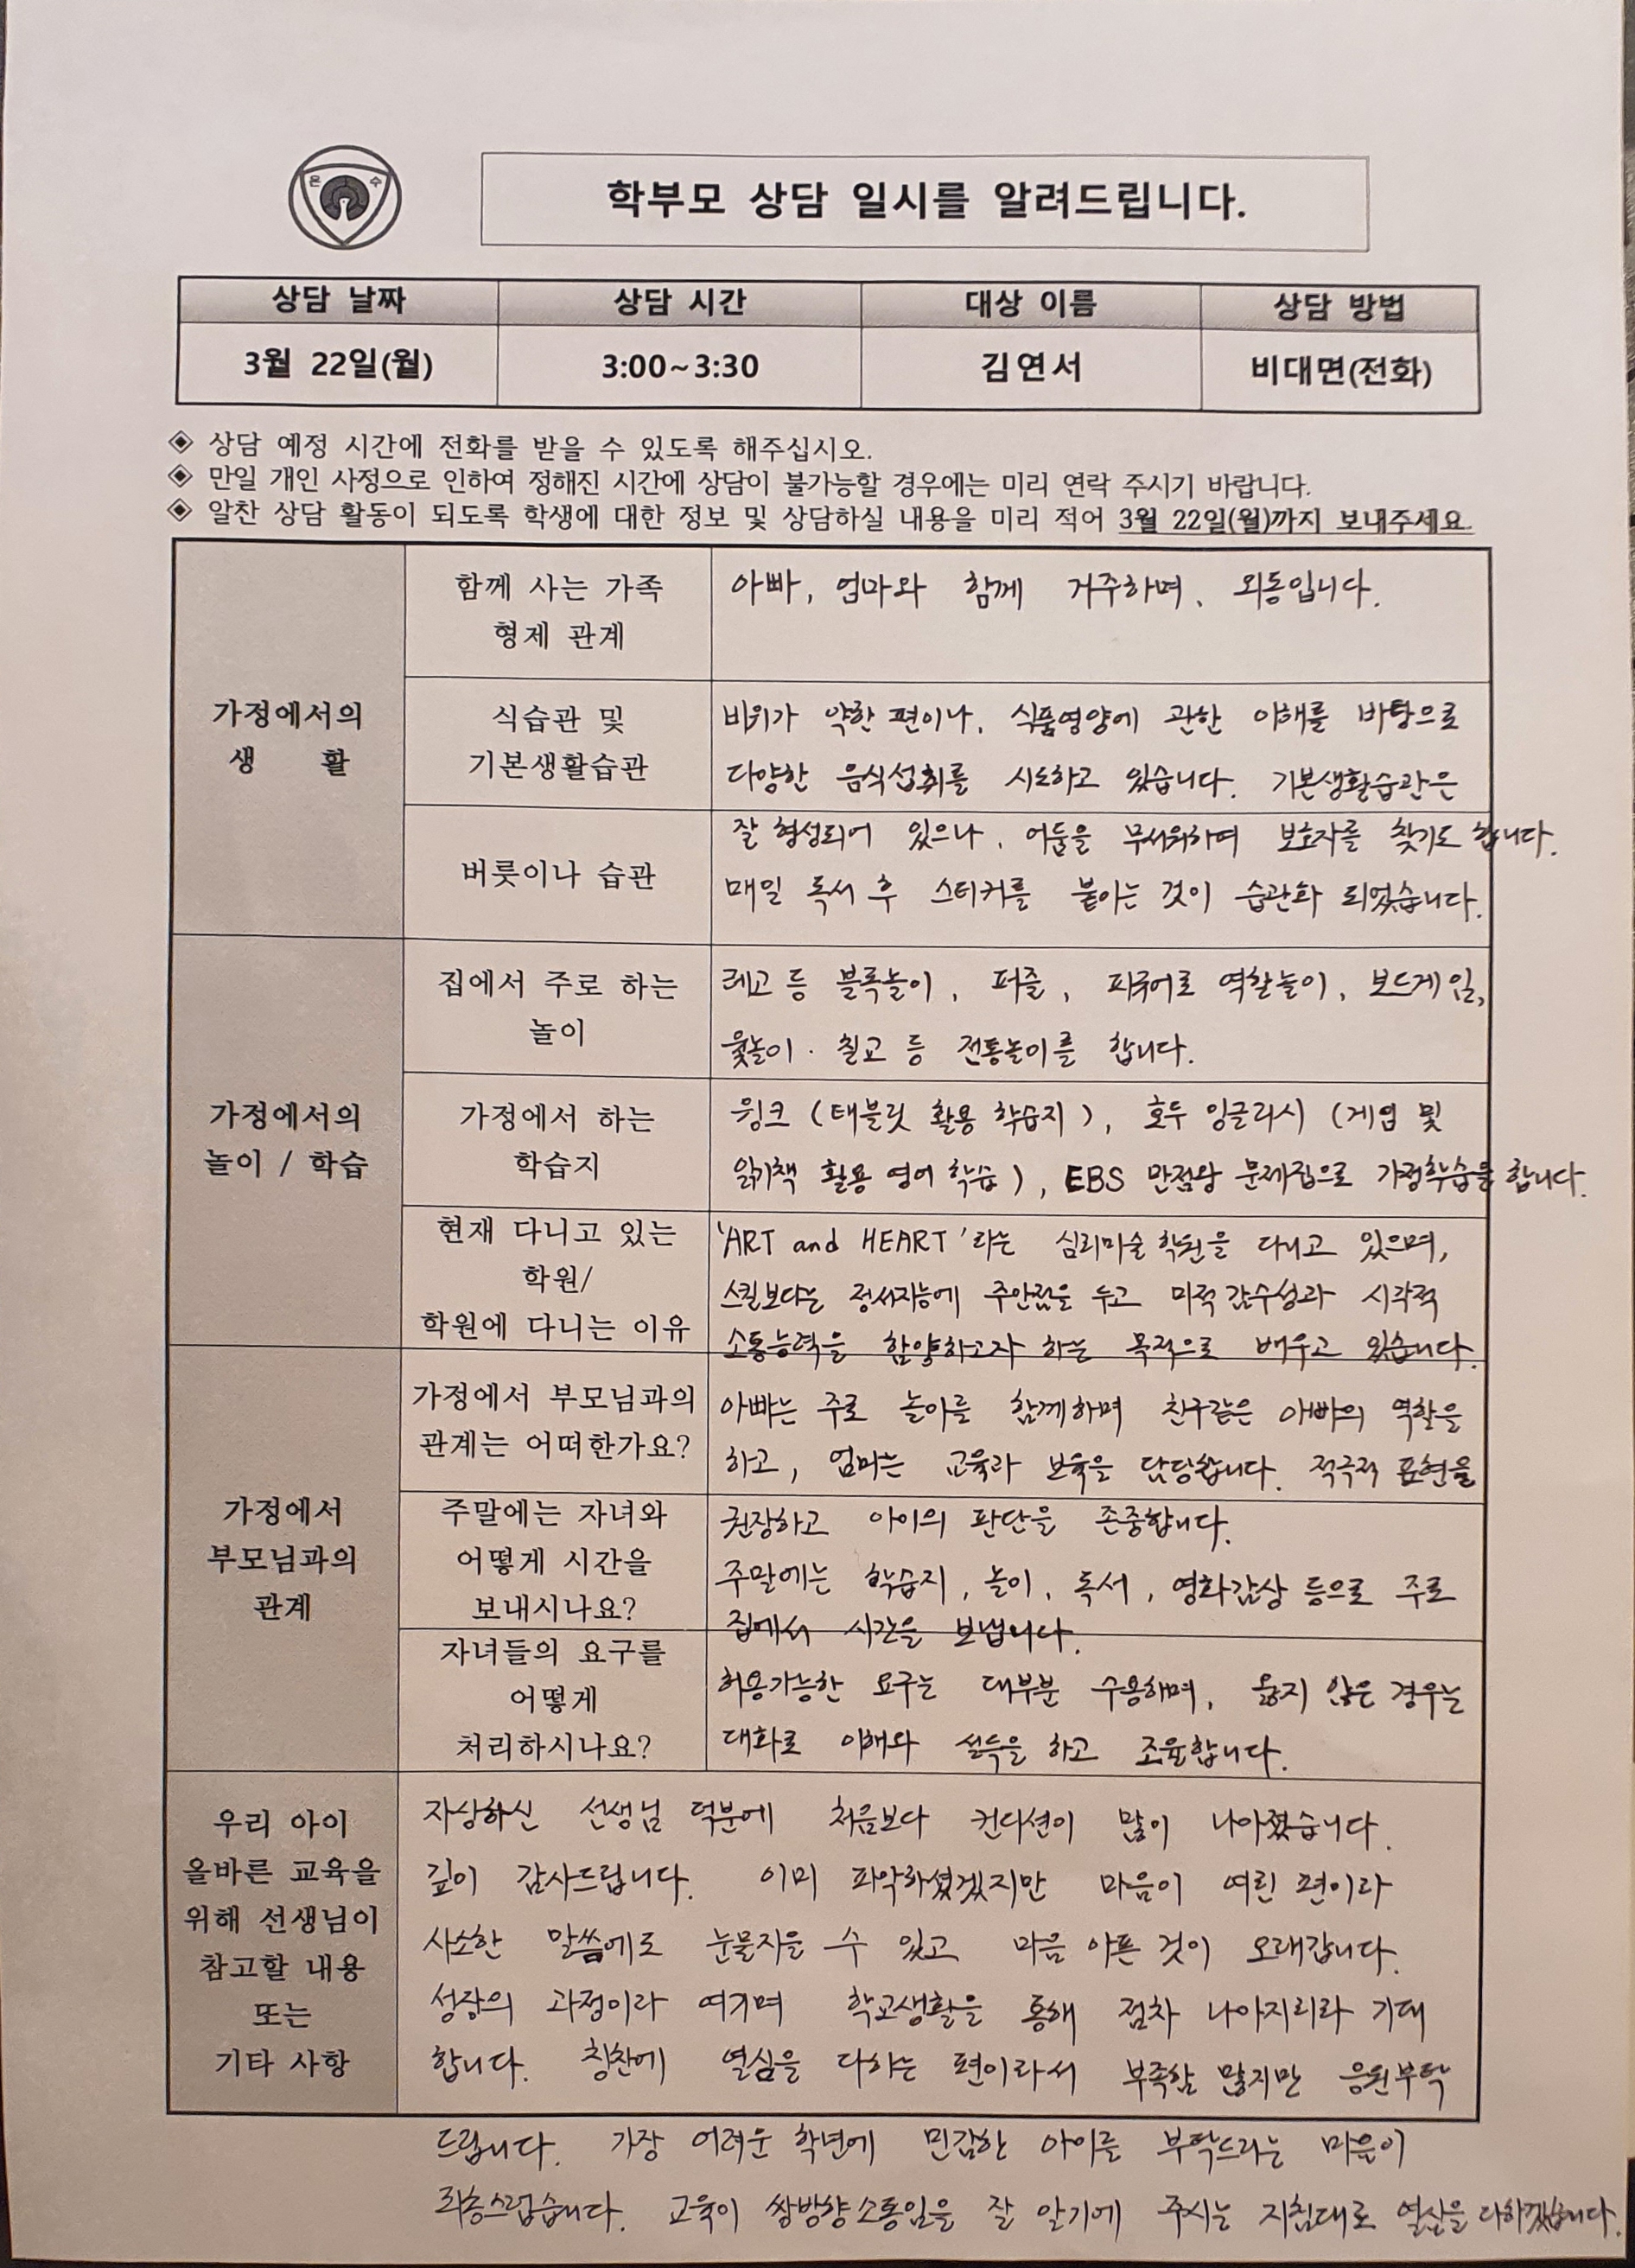 온 수
학부모 상담 일시를 알려드립니다.
상담 날짜 상담 시간 대상 이름 상담 방법
3월 22일(월) 3:00~3:30 김연서 비대면(전화)
◈ 상담 예정 시간에 전화를 받을 수 있도록 해주십시오.
◈ 만일 개인 사정으로 인하여 정해진 시간에 상담이 불가능할 경우에는 미리 연락 주시기 바랍니다.
◈ 알찬 상담 활동이 되도록 학생에 대한 정보 및 상담하실 내용을 미리 적어 3월 22일(월)까지 보내주세요.
가정에서의
생 활
함께 사는 가족
형제 관계
아빠, 엄마와 함께 거주하며, 외동입니다.
식습관 및
기본생활습관
비위가 약한 편이나, 식품영양에 관한 이해를 바탕으로
다양한 음식섭취를 시도하고 있습니다. 기본생활습관은
버릇이나 습관
잘 형성되어 있으나, 어둠을 무서워하며 보호자를 찾기도 합니다.
매일 독서 후 스티커를 붙이는 것이 습관화 되었습니다.
가정에서의
놀이 / 학습
집에서 주로 하는
놀이
레고 등 블록놀이, 퍼즐, 피규어로 역할놀이, 보드게임,
윷놀이·칠교 등 전통놀이를 합니다.
가정에서 하는
학습지
윙크 (태블릿 활용 학습지), 호두 잉글리시 (게임 및
읽기책 활용 영어 학습), EBS 만점왕 문제집으로 가정학습을 합니다.
현재 다니고 있는
학원/
학원에 다니는 이유
'ART and HEART'라는 심리미술학원을 다니고 있으며,
스킬보다는 정서지능에 주안점을 두고 미적 감수성과 시각적
소통능력을 함양하고자 하는 목적으로 배우고 있습니다.
가정에서
부모님과의
관계
가정에서 부모님과의
관계는 어떠한가요?
아빠는 주로 놀이를 함께하며 친구같은 아빠의 역할을
하고, 엄마는 교육과 보육을 담당합니다. 적극적 표현을
주말에는 자녀와
어떻게 시간을
보내시나요?
권장하고 아이의 판단을 존중합니다.
주말에는 학습지, 놀이, 독서, 영화감상 등으로 주로
집에서 시간을 보냅니다.
자녀들의 요구를
어떻게
처리하시나요?
허용가능한 요구는 대부분 수용하며, 옳지 않은 경우는
대화로 이해와 설득을 하고 조율합니다.
우리 아이
올바른 교육을
위해 선생님이
참고할 내용
또는
기타 사항
자상하신 선생님 덕분에 처음보다 컨디션이 많이 나아졌습니다.
깊이 감사드립니다. 이미 파악하셨겠지만 마음이 여린 편이라
사소한 말씀에도 눈물지을 수 있고 마음 아픈 것이 오래갑니다.
성장의 과정이라 여기며 학교생활을 통해 점차 나아지리라 기대
합니다. 칭찬에 열심을 다하는 편이라서 부족함 많지만 응원부탁
드립니다. 가장 어려운 학년에 민감한 아이를 부탁드리는 마음이
죄송스럽습니다. 교육이 쌍방향소통임을 잘 알기에 주시는 지침대로 열심을 다하겠습니다.